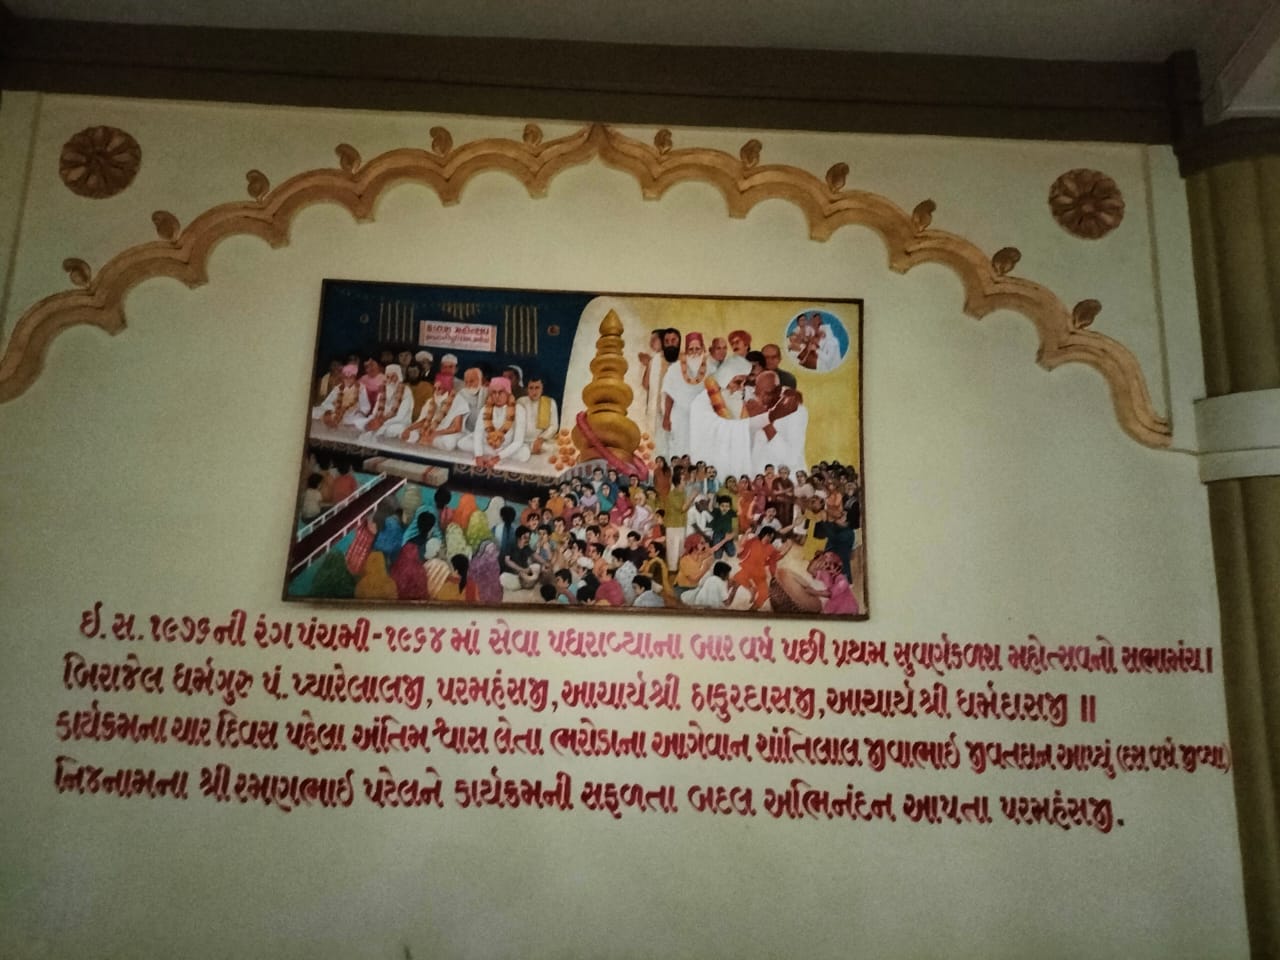 કળશ મહોત્સવ
ઇ. સ. ૧૯૭૬ની રંગપંચમી-૧૯૬૪માં સેવા પધરાવ્યાના બાર વર્ષ પછી પ્રથમ સુવર્ણકળશ મહોત્સવનો સભામંચ।
બિરાજેલ ધર્મગુરુ પં. પ્યારેલાલજી, પરમહંસજી, આચાર્યશ્રી ઠાકુરદાસજી, આચાર્ય શ્રી ધર્મદાસજી ॥
કાર્યક્રમના ચાર દિવસ પહેલા અંતિમ શ્વાસ લેતા ભરોડાના આગેવાન શાંતિલાલ જીવાભાઇ જીવતદાન આપ્યું (દસ વર્ષ જીવ્યા)
નિજનામના શ્રી રમણભાઇ પટેલને કાર્યક્રમની સફળતા બદલ અભિનંદન આપતા પરમહંસજી.